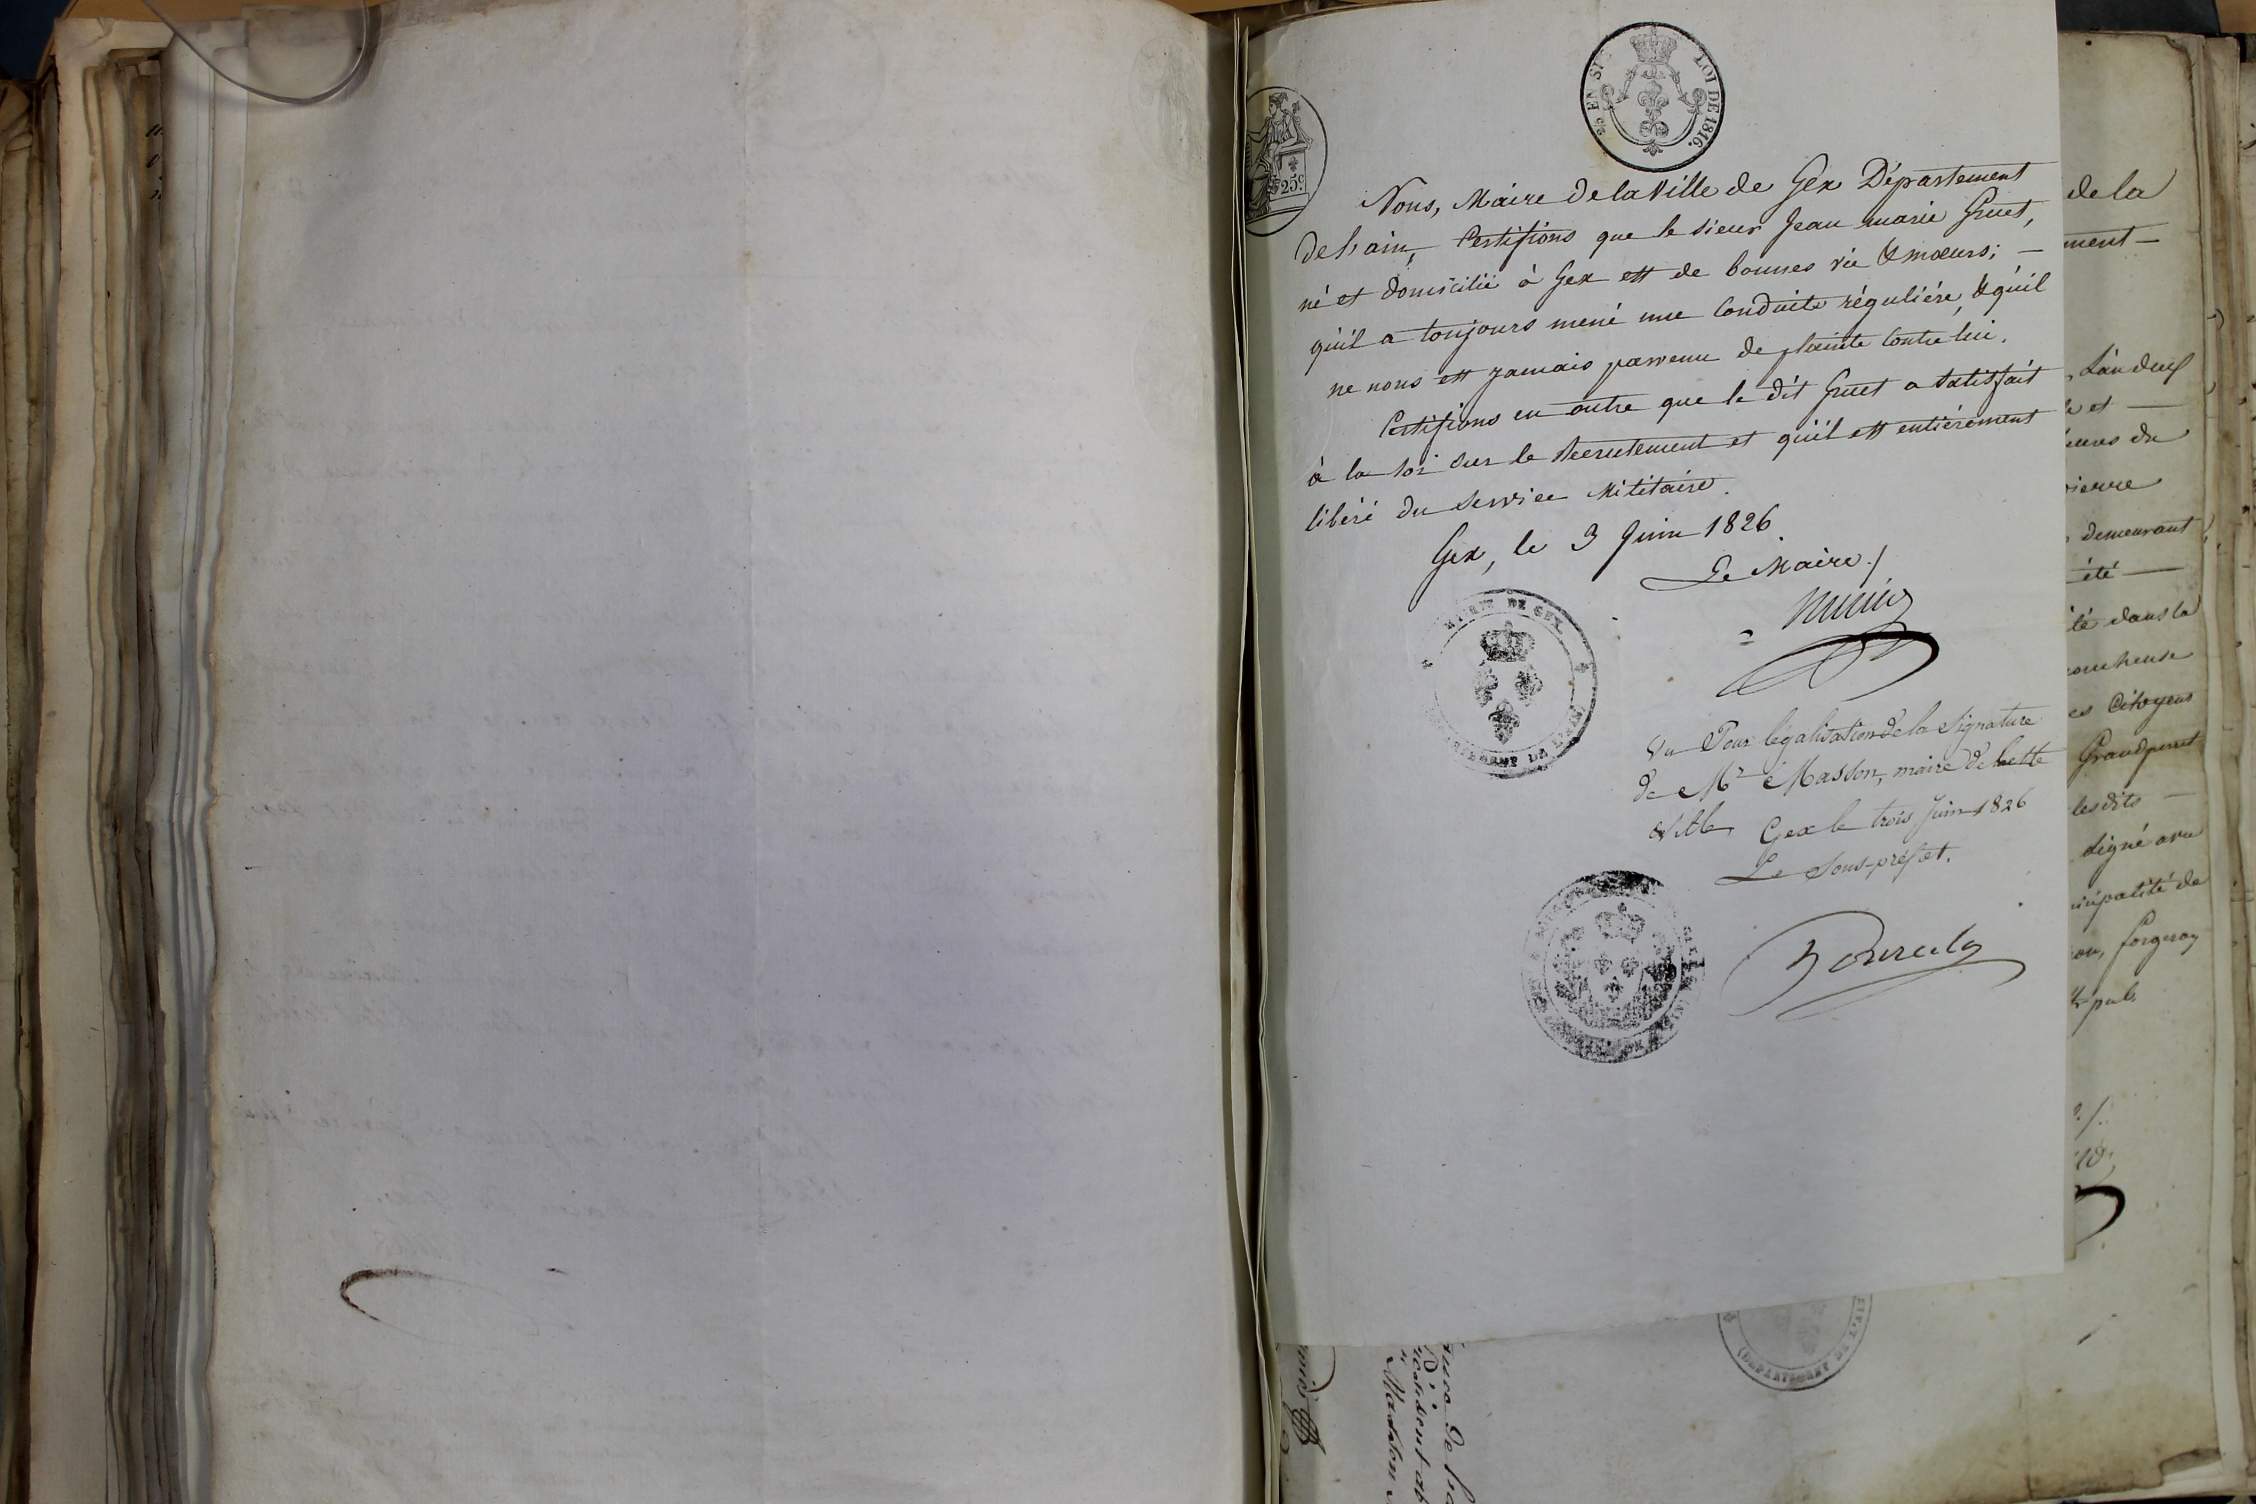 EN SUS
LOI DE 1816.
25c
Nous, Maire de la Ville de Gex Département
de l'ain, Certifions que le sieur Jean marie Gruet,
né et domicilié à Gex est de bonnes vie & mœurs; —
qu'il a toujours mené une Conduite régulière, & qu'il
ne nous est jamais parvenu de plainte Contre lui.
Certifions en outre que le dit Gruet a satisfait
à la loi sur le Recrutement et qu'il est entièrement
libéré du service Militaire.
Gex, le 3 Juin 1826
Le Maire /
MAIRIE DE GEX
DEPARTEMENT DE L'AIN
Vu Pour légalisation de la Signature
de Mr Masson, maire de cette
Ville, Gex le trois Juin 1826
Le Sous-préfet.
de la
ment —
et —
ierre
demeurant
été —
té dans la
es Citoyens
Grandperret
lesdits —
signé avec
icipalité de
forgeron
pub.
DEPARTEMENT DE L'AIN